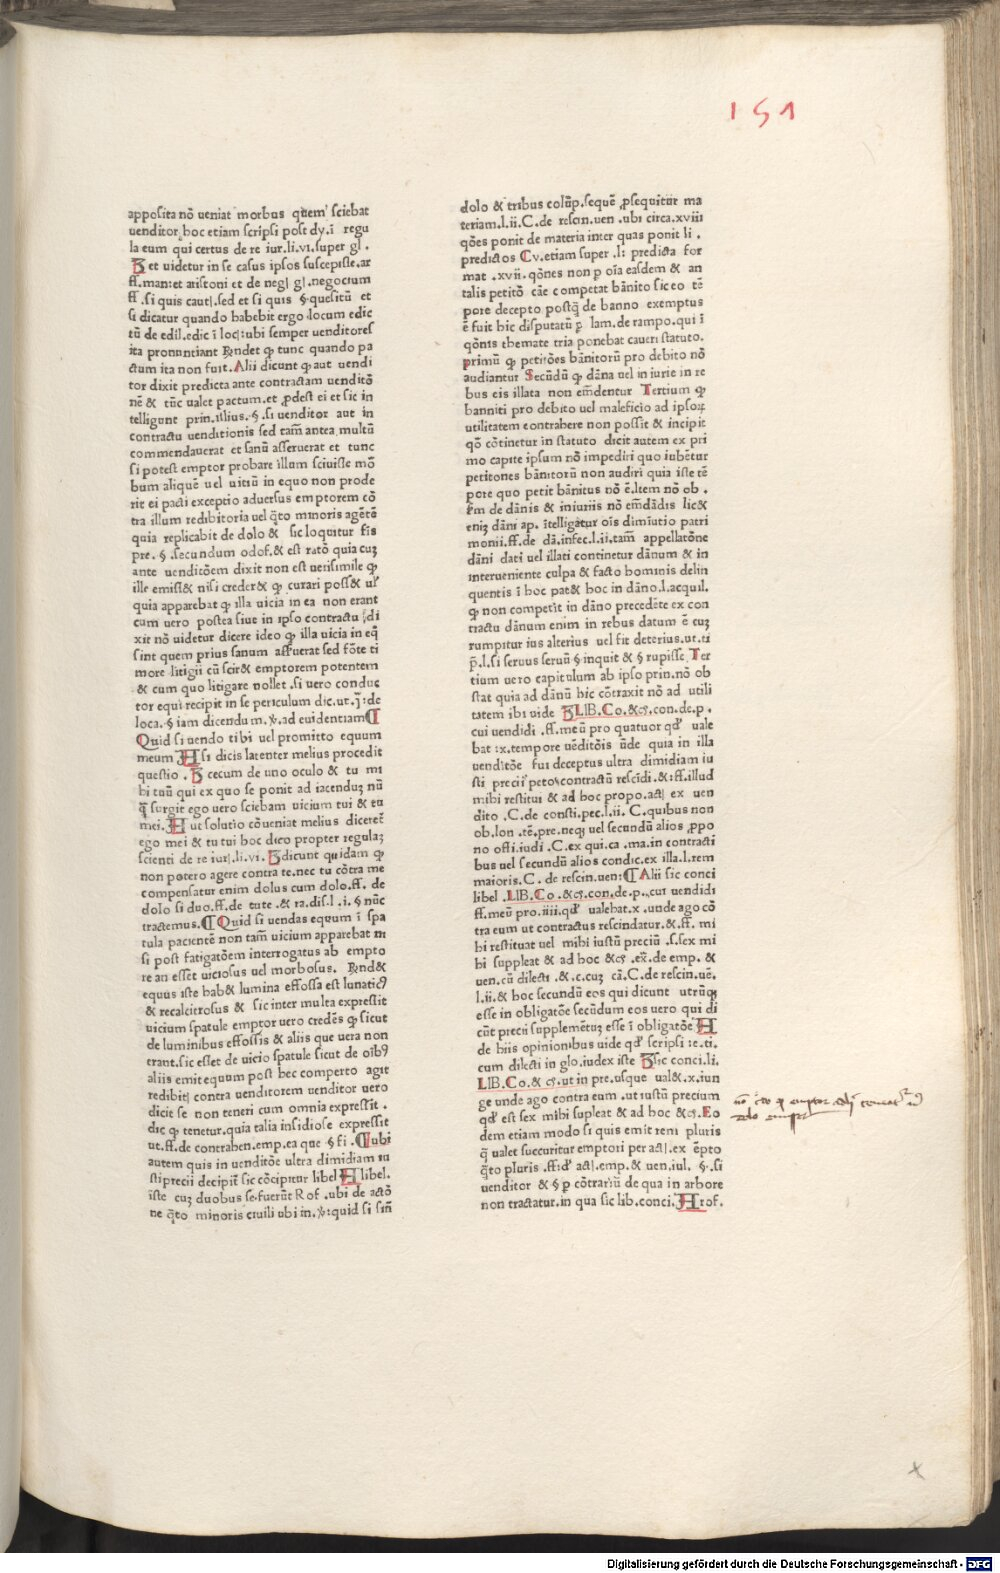 151
apposita nō ueniat morbus quem sciebat
uenditor hoc etiam scripsi post dy.ī regu
la eum qui certus de re iur.li.vi.super gl.
et uidetur in se casus ipsos suscepisse.ar
ff.man:et aristoni et de neg| g|.negocium
ff.si quis caut|.sed et si quis §.quesitū et
si dicatur quando habebit ergo locum edic
tū de edil.edic ī loc|:ubi semper uenditores
ita pronuntiant Rndet ꝙ tunc quando pa
ctum ita non fuit.Alii dicunt ꝙ aut uendi
tor dixit predicta ante contractam uenditō
nē & tūc ualet pactum.et ꝓdest ei et sic in
telligunt prin.illius.§.si uenditor aut in
contractu uenditionis sed tam̄ antea multū
commendauerat et sanū asseruerat et tunc
si potest emptor probare illum sciuisse mō
bum aliquē uel uitiū in equo non prode
rit ei pacti exceptio aduersus emptorem cō
tra illum redibitoria uel q̄to minoris agētē
quia replicabit de dolo & sic loquitur fīs
pre.§.secundum odof.& est ratō quia cuȝ
ante uenditōem dixit non est uerisimile ꝙ
ille emiss& nisi creder& ꝙ curari poss& ul'
quia apparebat ꝙ illa uicia in ea non erant
cum uero postea siue in ipso contractu di
xit nō uidetur dicere ideo ꝙ illa uicia in eq̄
sint quem prius sanum affuerat sed fōte ti
more litigii cū scir& emptorem potentem
& cum quo litigare nollet.si uero conduc
tor equi recipit in se periculum dic.ut.j:de
loca.§ iam dicendum.℣.ad euidentiam¶
Quid si uendo tibi uel promitto equum
meum H si dicis latenter melius procedit
questio. cecum de uno oculo & tu mi
hi tuū qui ex quo se ponit ad iacenduȝ nū
q̄ surgit ego uero sciebam uicium tui & tu
mei.H ut solutio cōueniat melius diceret̄
ego mei & tu tui hoc dico propter regulaȝ
scienti de re iur|.li.vi. dicunt quidam ꝙ
non potero agere contra te.nec tu cōtra me
compensatur enim dolus cum dolo.ff. de
dolo si duo.ff.de tute.& ra.dis.l.i.§ nūc
tractemus.¶Quid si uendas equum ī spa
tula pacientē non tam̄ uicium apparebat nı
si post fatigatōem interrogatus ab empto
re an esset uiciosus uel morbosus. Rnd&
equus iste hab& lumina effossa est lunatic9
& recalcitrosus & sic inter multa expressit
uicium spatule emptor uero credēs ꝙ sicut
de luminibus effossis & aliis que uera non
erant.sic esset de uicio spatule sicut de oib9
aliis emit equum post hec comperto agit
redibit| contra uenditorem uenditor uero
dicit se non teneri cum omnia expressit.
dic ꝙ tenetur.quia talia insidiose expressit
ut.ff.de contrahen.emp.ea que § fi.¶ubi
autem quis in uenditōe ultra dimidiam iu
sti precii decipit̄ sic cōcipitur libel H libel.
iste cuȝ duobus se.fuerūt Rof.ubi de actō
ne q̄to minoris ciuili ubi in.℣:quid si sin̄
dolo & tribus colūp.sequē ꝓsequitur ma
teriam.l.ii.C.de rescin.uen.ubi circa.xviii
qōes ponit de materia inter quas ponit li.
predictos Cv.etiam super.l: predicta for
mat.xvii.qōnes non p oīa easdem & an
talis petitō cāe competat bānito sic eo tē
pore decepto postq̄ de banno exemptus
ē fuit hic disputatū p lam.de rampo.qui ī
qōnis themate tria ponebat caueri statuto.
primū ꝙ petitōes bānitorū pro debito nō
audiantur Secūdū ꝙ dāna uel in iurie in re
bus eis illata non em̄dentur Tertium ꝙ
banniti pro debito uel maleficio ad ipsoꝝ
utilitatem contrahere non possit & incipit
qō cōtinetur in statuto dicit autem ex pri
mo capite ipsum nō impediri quo iubētur
petitones bānitorū non audiri quia iste tē
pore quo petit bānitus nō ē.Item nō ob.
fm de dānis & iniuriis nō em̄dādis lic&
eniȝ dāni ap.ītelligatur oīs dimīutio patri
monii.ff.de dā.infec.l.ii.tam̄ appellatōne
dāni dati uel illati continetur dānum & in
interueniente culpa & facto hominis delin
quentis ī hoc pat& hoc in dāno.l.acquil.
ꝙ non competit in dāno precedēte ex con
tractu dānum enim in rebus datum ē cuȝ
rumpitur ius alterius uel fit deterius.ut.ti
p̄.l.si seruus seruū § inquit & § rupisse.Ter
tium uero capitulum ab ipso prin.nō ob
stat quia ad dānū hic cōtraxit nō ad utili
tatem ibi uide LIB.Co.&cr.con.de.p.
cui uendidi.ff.meū pro quatuor qd' uale
bat :x.tempore uēditōis ūde quia in illa
uenditōe fui deceptus ultra dimidiam iu
sti precii peto contractū rescīdi.&:ff.illud
mihi restitui & ad hoc propo.act| ex uen
dito.C.de consti.pec.l.ii.C.quibus non
ob.lon.tē.pre.neq; uel secundū alios ꝓpo
no offi.iudi.C.ex qui.ca.ma.in contracti
bus uel secundū alios condic.ex illa.l.rem
maioris.C.de rescin.uen:¶Alii sic conci
libel.LIB.Co.&cr.con.de.p..cui uendidi
ff.meū pro.iiii.qd' ualebat.x.unde ago cō
tra eum ut contractus rescindatur.&.ff.mi
hi restituat uel mihi iustū preciū.s.sex mi
hi suppleat & ad hoc &cr.ex.de emp.&
uen.cū dilecti.&.c.cuȝ cā.C.de rescin.uē.
l.ii.& hoc secundū eos qui dicunt utrūq;
esse in obligatōe secūdum eos uero qui di
cūt precii supplemētuȝ esse ī obligatōe H
de hiis opinionibus uide qd' scripsi :e.ti.
cum dilecti in glo.iudex iste sic conci.li.
LIB.Co.& cr.ut in pre.usque ual&.x.iun
ge unde ago contra eum.ut iustū precium
qd' est sex mihi supleat & ad hoc &cr.Eo
dem etiam modo si quis emit rem pluris
q̄ ualet succuritur emptori per act|.ex ēpto
q̄to pluris.ff:d' act|.emp.& uen.iul. §.si
uenditor & § p cōtrariū de qua in arbore
non tractatur.in qua sic lib.conci.H rof.
Digitalisierung gefördert durch die Deutsche Forschungsgemeinschaft - DFG